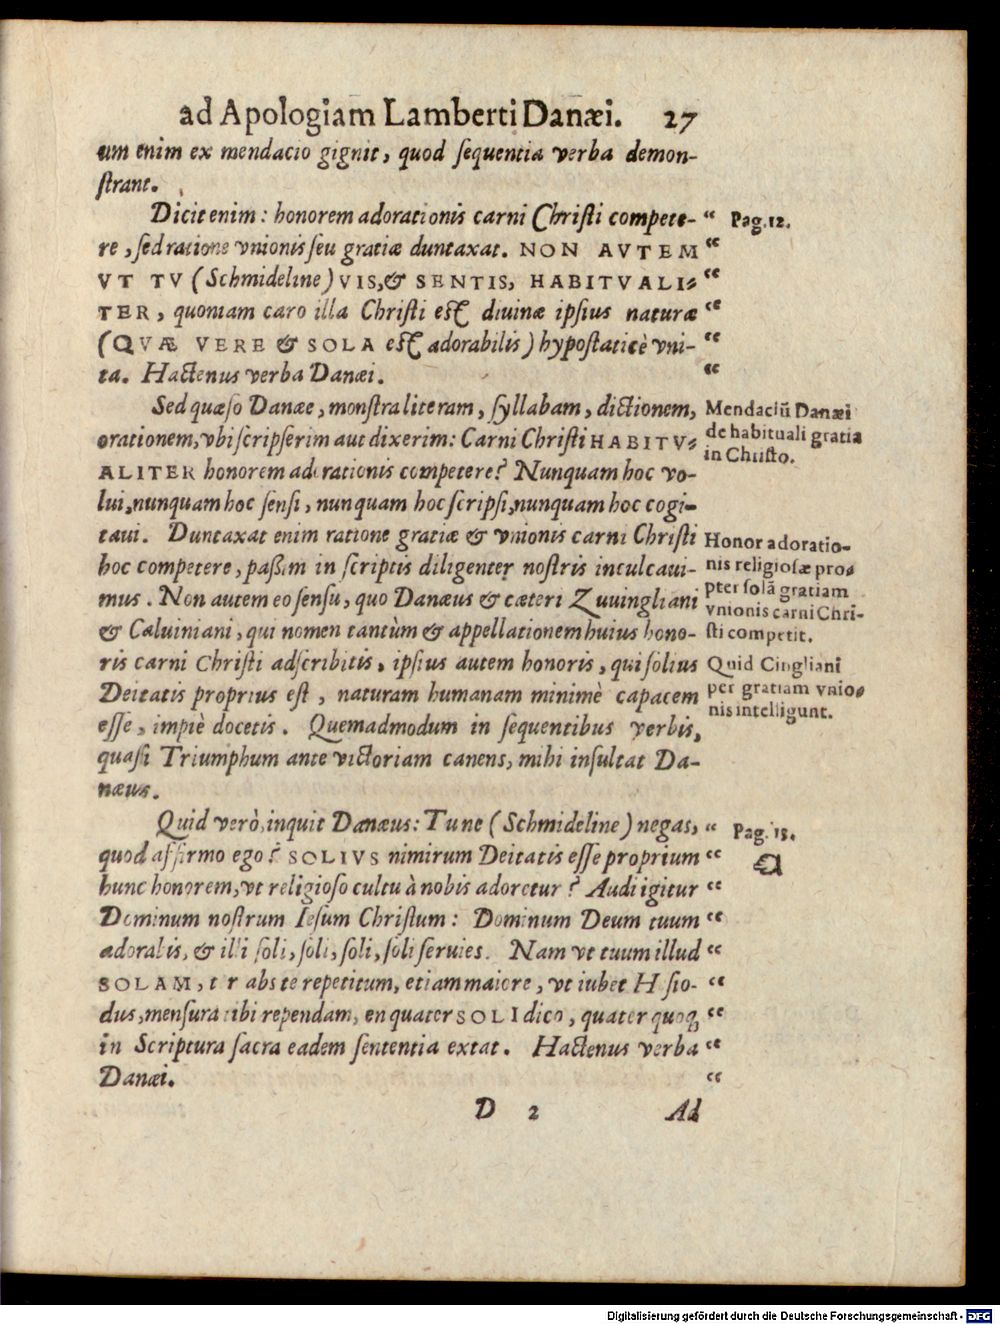 ad Apologiam Lamberti Danæi. 27
um enim ex mendacio gignit, quod ſequentia verba demon-
ſtrant.
Dicit enim: honorem adorationis carni Chriſti compete- “ Pag. 12.
re, ſed ratione vnionis ſeu gratiæ duntaxat. NON AVTEM “
VT TV (Schmideline) VIS, & SENTIS, HABITVALI- “
TER, quoniam caro illa Chriſti eſt diuinæ ipſius naturæ “
(QVÆ VERE & SOLA eſt adorabilis) hypoſtaticè vni- “
ta. Hactenus verba Danæi. “
Sed quæſo Danæe, monſtra literam, ſyllabam, dictionem,
orationem, vbi ſcripſerim aut dixerim: Carni Chriſti HABITV-
ALITER honorem adorationis competere? Nunquam hoc vo-
lui, nunquam hoc ſenſi, nunquam hoc ſcripſi, nunquam hoc cogi-
taui. Duntaxat enim ratione gratiæ & vnionis carni Chriſti
hoc competere, paßim in ſcriptis diligenter noſtris inculcaui-
mus. Non autem eo ſenſu, quo Danæus & cæteri Zuuingliani
& Caluiniani, qui nomen tantùm & appellationem huius hono-
ris carni Chriſti adſcribitis, ipſius autem honoris, qui ſolius
Deitatis proprius eſt, naturam humanam minimè capacem
eſſe, impiè docetis. Quemadmodum in ſequentibus verbis,
quaſi Triumphum ante victoriam canens, mihi inſultat Da-
næus.
Mendaciũ Danæi
de habituali gratia
in Chriſto.
Honor adoratio-
nis religioſæ pro-
pter ſolã gratiam
vnionis carni Chri-
ſti competit.
Quid Cingliani
per gratiam vnio-
nis intelligunt.
Quid verò, inquit Danæus: Tu ne (Schmideline) negas, “ Pag. 15.
quod affirmo ego? SOLIVS nimirum Deitatis eſſe proprium “
hunc honorem, vt religioſo cultu à nobis adoretur? Audi igitur “
Dominum noſtrum Ieſum Chriſtum: Dominum Deum tuum “
adorabis, & illi ſoli, ſoli, ſoli, ſoli ſeruies. Nam vt tuum illud “
SOLAM, ter abs te repetitum, etiam maiore, vt iubet Heſio- “
dus, menſura tibi rependam, en quater SOLI dico, quater quoq; “
in Scriptura ſacra eadem ſententia extat. Hactenus verba “
Danæi. “
D 2 Ad
Digitalisierung gefördert durch die Deutsche Forschungsgemeinschaft - DFG